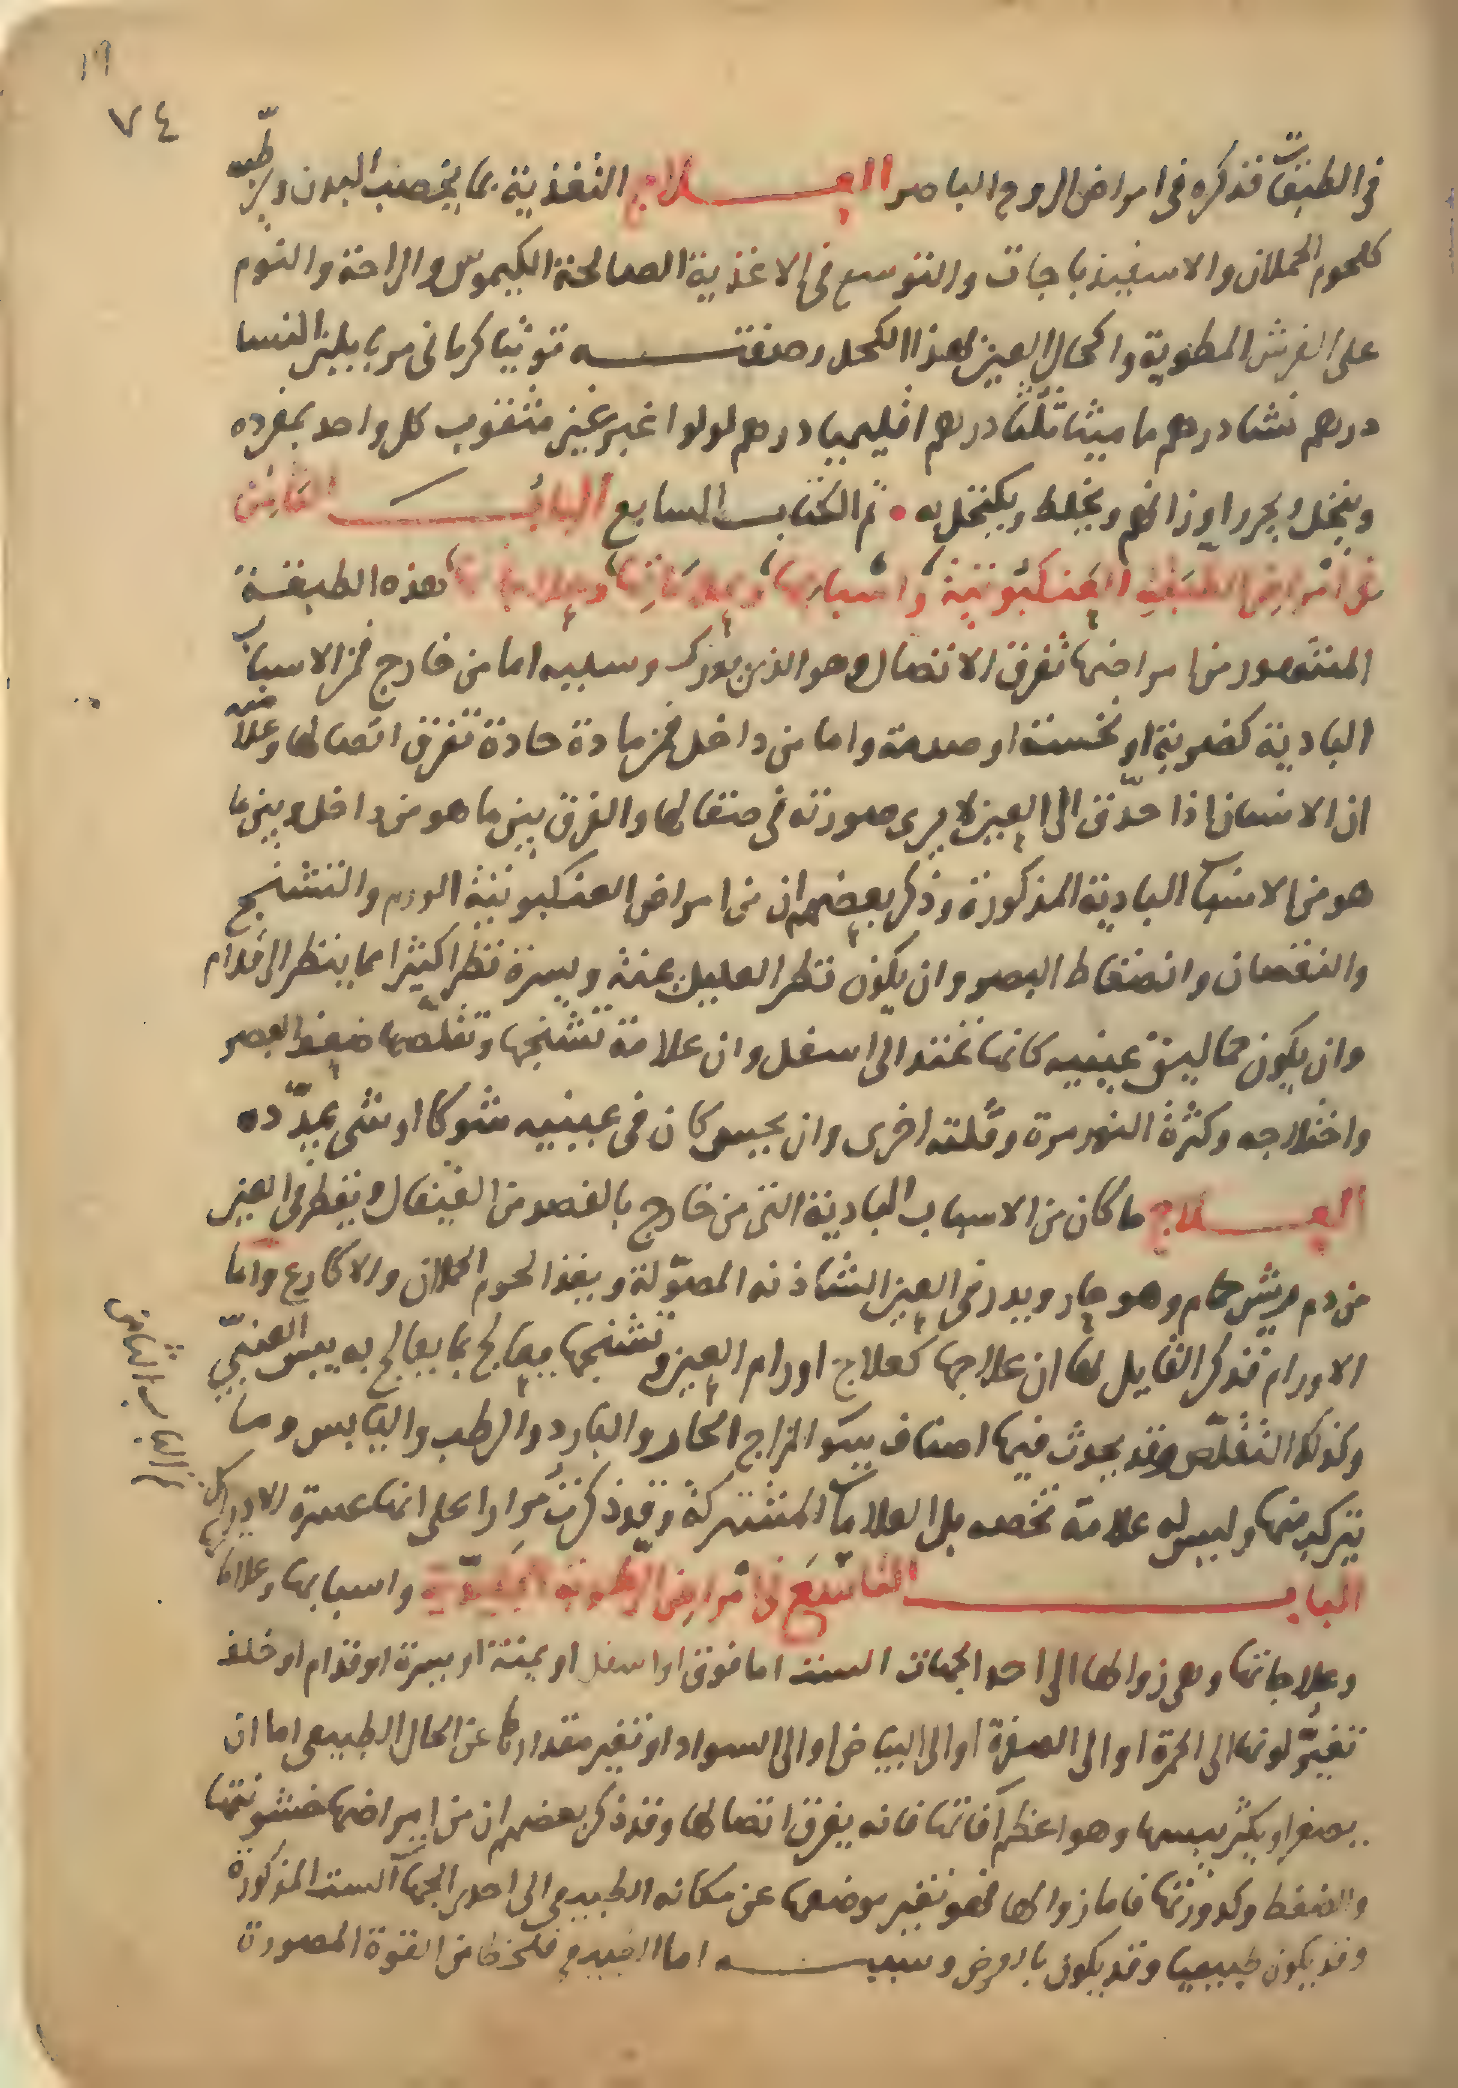 ١٩
٧٤
في الطبقات فذكره في امراض الروح الباصر العلاج التغذية بما يخصب البدن ويرطبه
كلحوم الحملان والاسفيذباجات والتوسع في الاغذية الصالحة الكيموس والراحة والنوم
على الفرش المطوية واكحال العين بهذا الكحل وصفته توتيا كرماني مربا بلبن النسا
درهم نشا درهم ماميثا ثلثا درهم اقليميا درهم لولوا غير مثقوب كل واحد بمفرده
وينخل ويحرر اوزانهم ويخلط ويكتحل به تم الكتاب السابع الباب الثامن
في امراض الطبقة العنكبوتية واسبابها وعلاماتها وعلاجاتها هذه الطبقة
المتصور من امراضها تفرق الاتصال وهو الذي يدرك وسببه اما من خارج فمن الاسباب
البادية كضربة او نخسة او صدمة واما من داخل فمن مادة حادة تفرق اتصالها وعلامته
ان الانسان اذا حدّق الى العين لا يرى صورته في صقالها والفرق بين ما هو من داخل وبين ما
هو من الاسباب البادية المذكورة وذكر بعضهم ان من امراض العنكبوتية الورم والتشنج
والنقصان وانضغاط البصر وان يكون نظر العليل يمنة ويسرة نظرا كثيرا مما ينظر الى قدام
وان يكون حماليق عينيه كانها تمتد الى اسفل وان علامة تشنجها وتقلّصها ضعف البصر
واختلاجه وكثرة النهر مرة وقلته اخرى وان يحس كان في عينيه شوكا او شي يمدّده
العلاج ما كان من الاسباب البادية التي من خارج بالفصد من القيفال ويقطر في العين
من دم ريش حمام وهو حار ويدر في العين الشاذنه المصوّلة ويغذا لحوم الحملان والاكارع واما
الاورام فذكر القايل لها ان علاجها كعلاج اورام العين وتشنجها يعالج بما يعالج به يبس العنبيّ
وكذلك التقلّص وقد يحدث فيها اصناف سو المزاج الحار والبارد والرطب واليابس وما
يتركب منها وليس له علامة تخصه بل العلامات المشتركة وقد ذكرتُ مِرارا على انها عسرة الادراك
الباب التاسع في امراض الرطوبة الجليديّة واسبابها وعلاماتها
وعلاجاتها وهي زوالها الى احد الجهات الست اما فوق او اسفل او يمنة او يسرة او قدام او خلف
تغيّر لونها الى الحمرة او الى الصفرة او الى البياض او الى السواد او تغير مقدارها عن الحال الطبيعى اما ان
يصغر او يكثر يبسها وهو اعظم آفاتها فانه يفرق اتصالها وقد ذكر بعضهم ان من امراضها خشونتها
والضغط وكدورتها فاما زوالها فهو تغير موضعها عن مكانه الطبيعي الى احدى الجهات الست المذكورة
وقد يكون طبيعيا وقد يكون بالعرض وسببه اما الطبيعي فلخطا من القوة المصورة
الباب الثامن